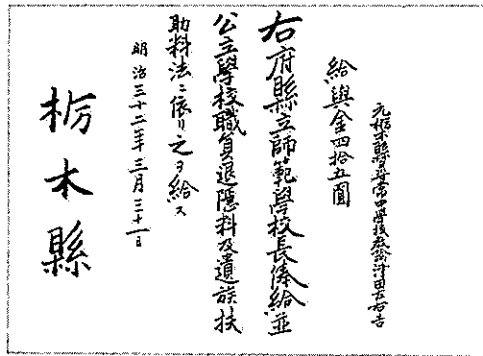 元栃木縣尋常中學校教諭津田
給與金四拾五圓
右府縣立師範學校長俸給並
公立學校職員退隱料及遺族扶
助料法ニ依リ之ヲ給ス
明治三十二年三月三十一日
栃木縣